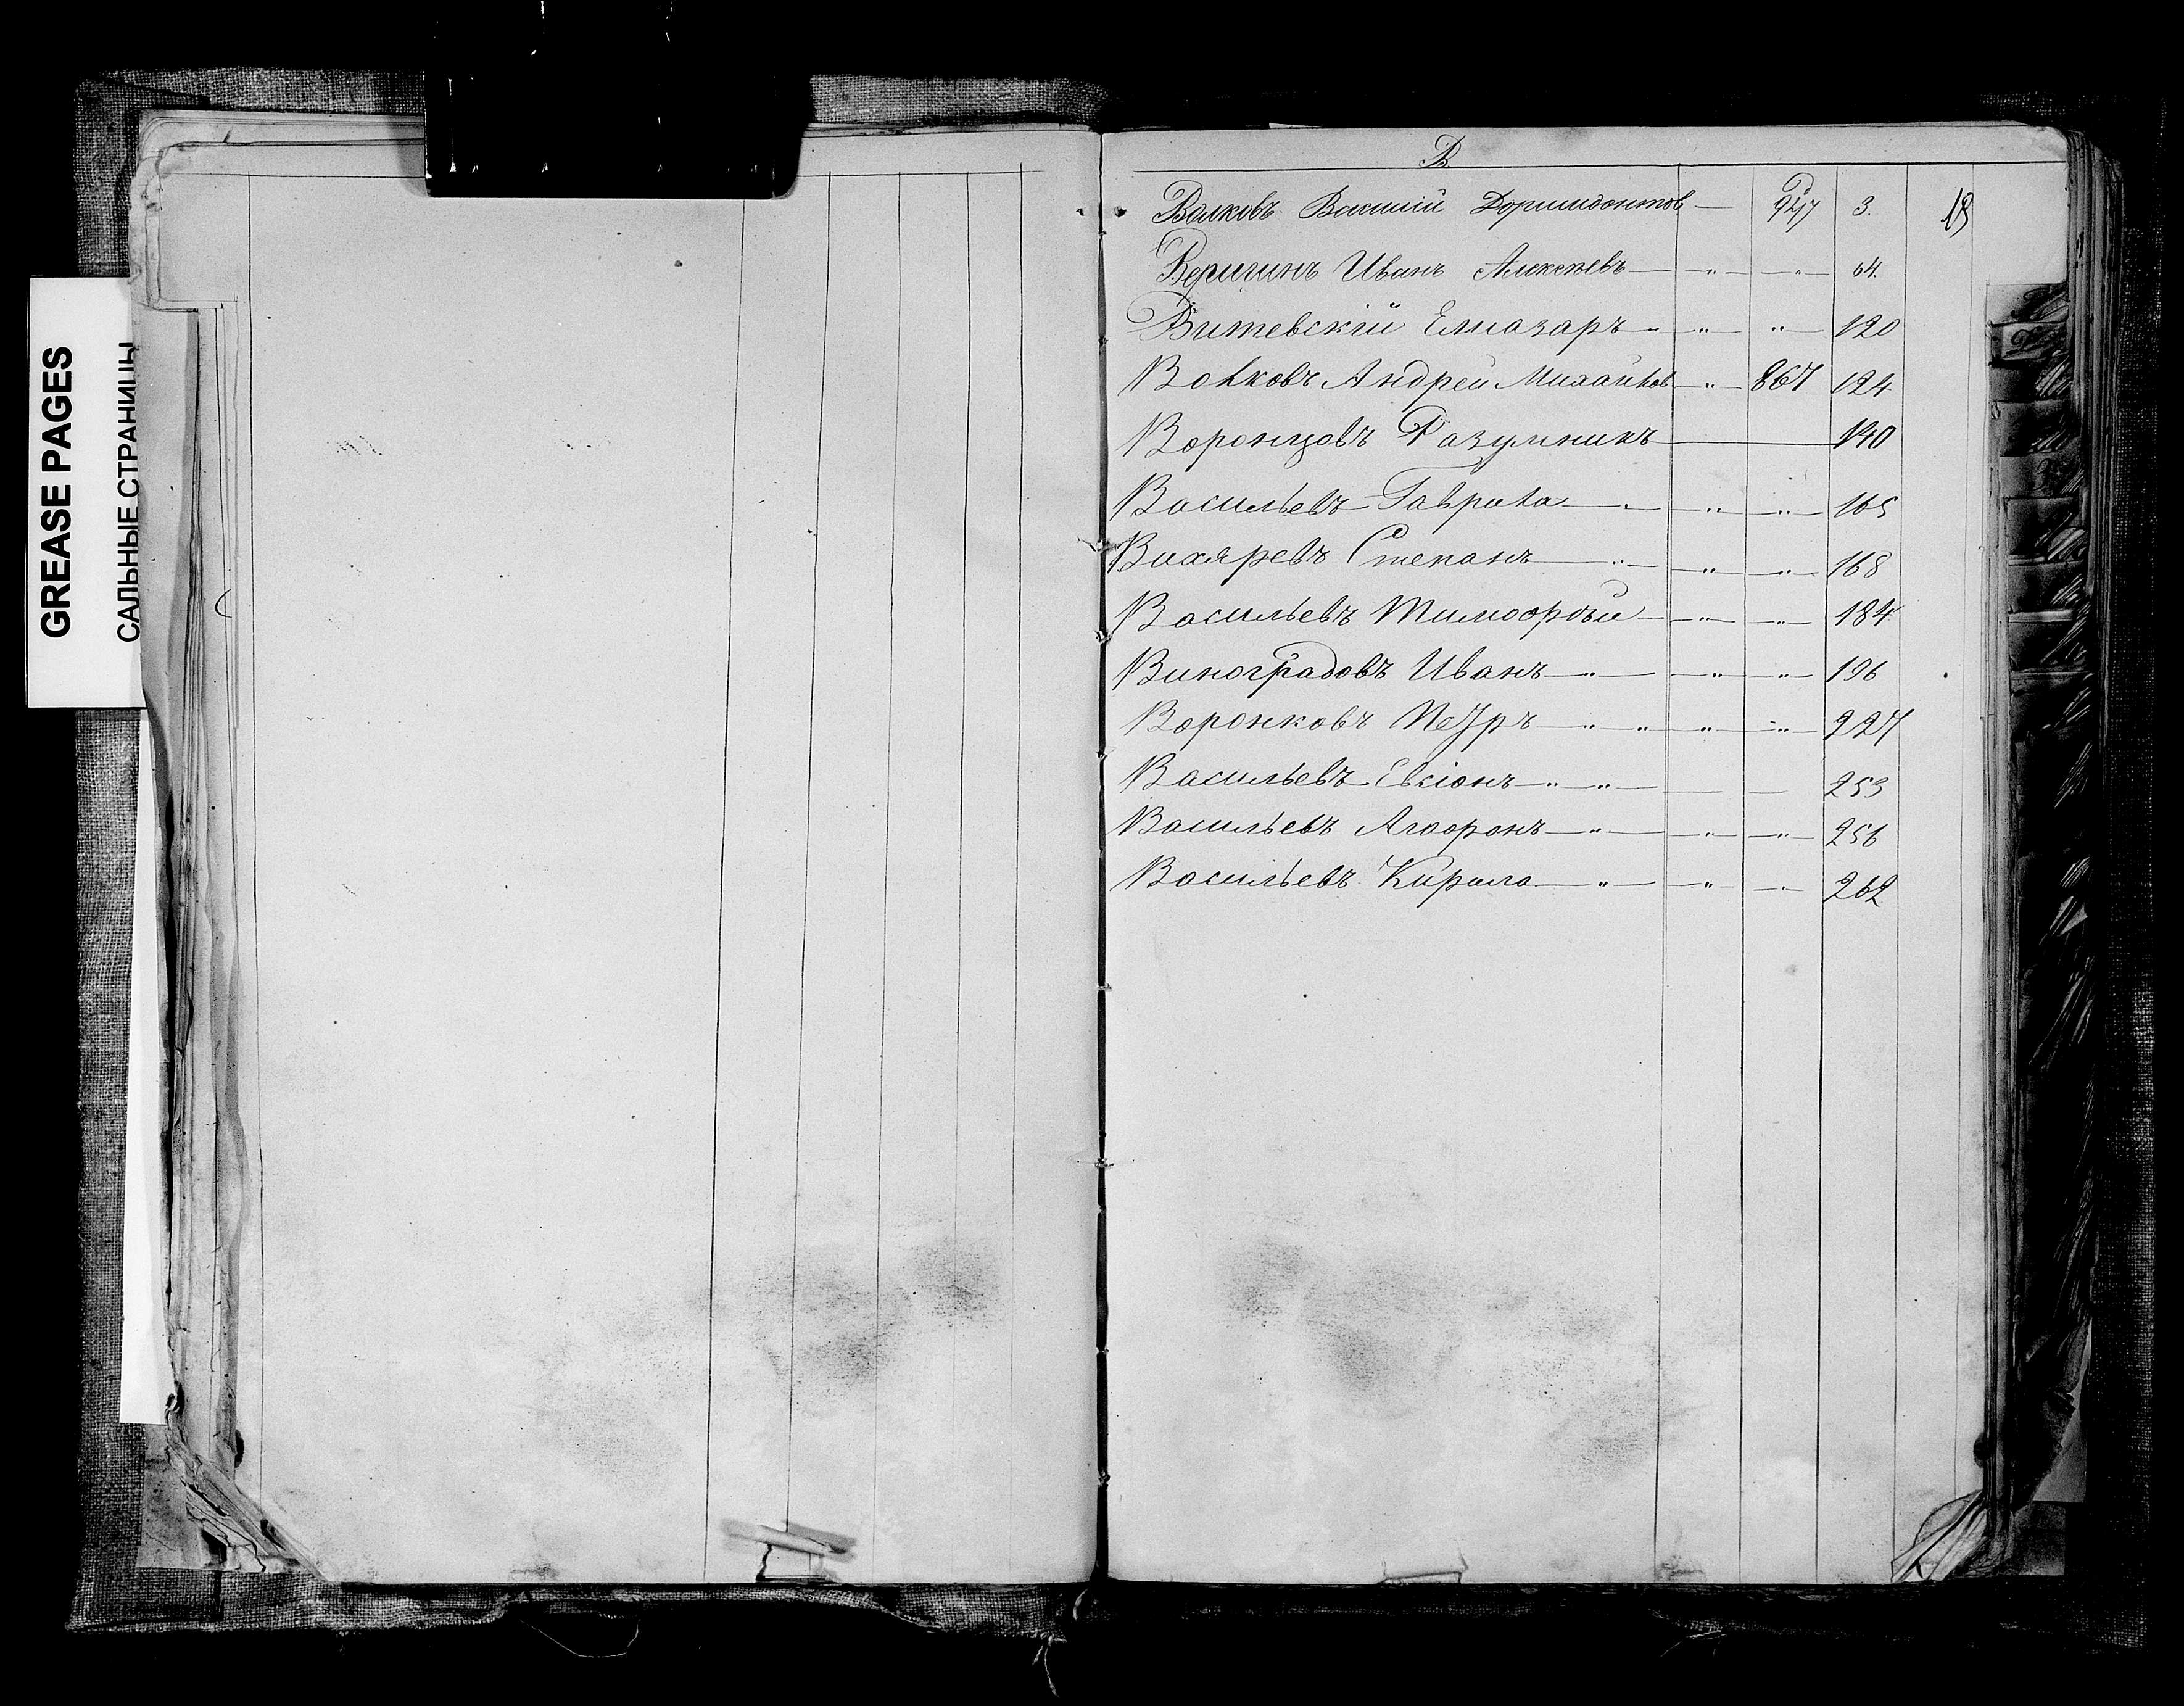 GREASE PAGES
САЛЬНЫЕ СТРАНИЦЫ
В
Валковъ Василій Доримидонтов — 947 3. 18
Веригинъ Иванъ Алексѣевъ — „ — „ — 64.
Витевскій Елиазаръ „ „ „ — 120
Волковъ Андрей Михайлов — „ — 867 124
Воронцовъ Разумникъ — 140
Васильевъ Гаврила — „ — „ — „ — 165
Вихяревъ Степанъ — „ — „ — „ — 168
Васильевъ Тимофѣй — „ — „ — 184
Виноградовъ Иванъ — „ — „ — „ — 196
Воронковъ Петръ — „ „ — „ — „ — 227
Васильевъ Евсіонъ — „ — „ — — — 253
Васильевъ Агафонъ — „ — „ — „ — 256
Васильевъ Кирила — „ — „ — „ — 262